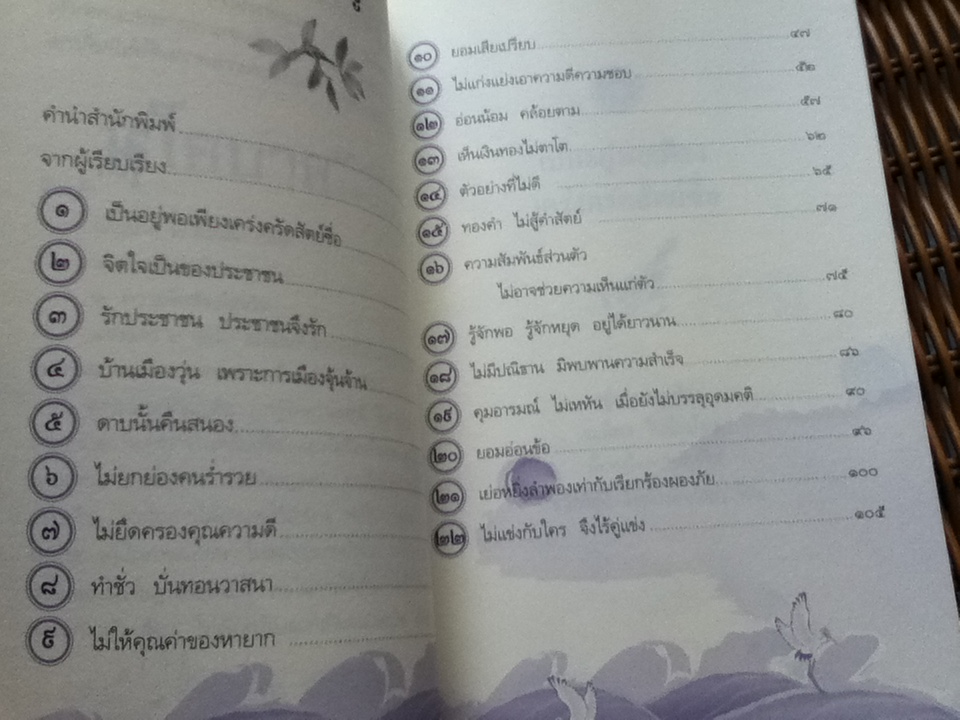 คำนำสำนักพิมพ์
จากผู้เรียบเรียง
๑ เป็นอยู่พอเพียงเคร่งครัดสัตย์ซื่อ
๒ จิตใจเป็นของประชาชน
๓ รักประชาชน ประชาชนจึงรัก
๔ บ้านเมืองวุ่น เพราะการเมืองจุ้นจ้าน
๕ ดาบนั้นคืนสนอง
๖ ไม่ยกย่องคนร่ำรวย
๗ ไม่ยึดครองคุณความดี
๘ ทำชั่ว บั่นทอนวาสนา
๙ ไม่ให้คุณค่าของหายาก
๑๐ ยอมเสียเปรียบ ๔๗
๑๑ ไม่แก่งแย่งเอาความดีความชอบ ๕๒
๑๒ อ่อนน้อม คล้อยตาม ๕๗
๑๓ เห็นเงินทองไม่ตาโต ๖๒
๑๔ ตัวอย่างที่ไม่ดี ๖๕
๑๕ ทองคำ ไม่สู้คำสัตย์ ๗๑
๑๖ ความสัมพันธ์ส่วนตัว
ไม่อาจช่วยความเห็นแก่ตัว ๗๕
๑๗ รู้จักพอ รู้จักหยุด อยู่ได้ยาวนาน ๘๐
๑๘ ไม่มีปณิธาน มิพบพานความสำเร็จ ๘๖
๑๙ คุมอารมณ์ ไม่เหหัน เมื่อยังไม่บรรลุอุดมคติ ๙๐
๒๐ ยอมอ่อนข้อ ๙๖
๒๑ เย่อหยิ่งลำพองเท่ากับเรียกร้องผองภัย ๑๐๐
๒๒ ไม่แข่งกับใคร จึงไร้คู่แข่ง ๑๐๕